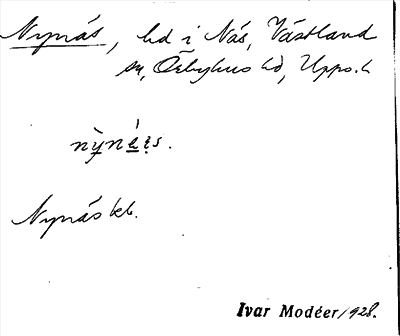 Nynäs, hd i Näs, Västland
sn, Örbyhus hd, Upps. l.
Nynäs kb.
Ivar Modéer 1928.